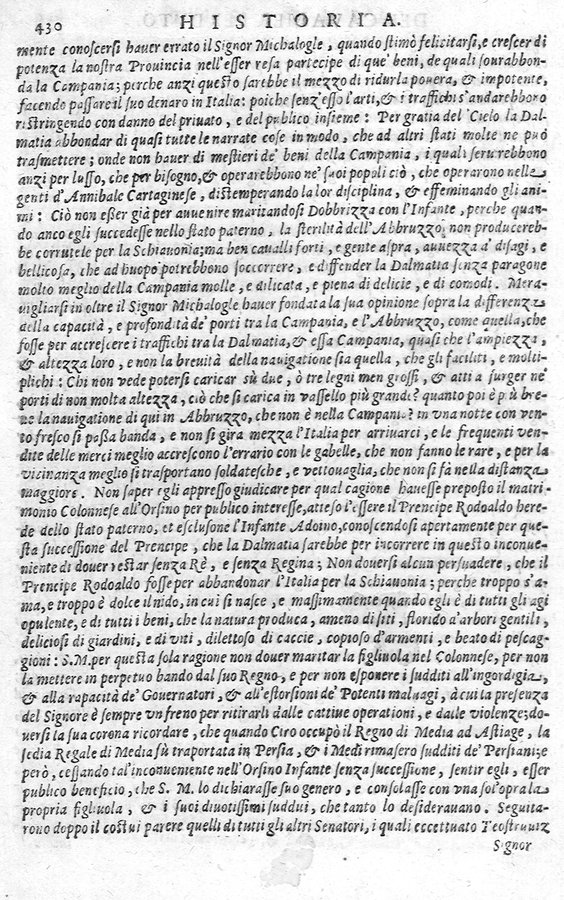 430 HISTORIA.
mente conoscersi hauer errato il Signor Michalogle, quando stimò felicitarsi, e crescer di
potenza la nostra Prouincia nell'esser resa partecipe di que' beni, de quali sourabbon-
da la Campania; perche anzi questo sarebbe il mezzo di ridurla pouera, & impotente,
facendo passare il suo denaro in Italia: poiche senz'esso l'arti, & i traffichi s'andarebbono
ristringendo con danno del priuato, e del publico insieme: Per gratia del Cielo la Dal-
matia abbondar di quasi tutte le narrate cose in modo, che ad altri stati molte ne può
trasmettere; onde non hauer di mestieri de' beni della Campania, i quali seruirebbono
anzi per lusso, che per bisogno, & operarebbono ne' suoi popoli ciò, che operarono nelle
genti d'Annibale Cartaginese, distemperando la lor disciplina, & effeminando gli ani-
mi: Ciò non esser già per auuenire maritandosi Dobbrizza con l'Infante, perche quan-
do anco egli succedesse nello stato paterno, la sterilità dell'Abbruzzo, non producereb-
be corrutele per la Schiauonia; ma ben caualli forti, e gente aspra, auuezza a' disagi, e
bellicosa, che ad huopo potrebbono soccorrere, e diffender la Dalmatia senza paragone
molto meglio della Campania molle, e dilicata, e piena di delicie, e di comodi. Mera-
uigliarsi in oltre il Signor Michalogle hauer fondata la sua opinione sopra la differenza
della capacità, e profondità de' porti tra la Campania, e l'Abbruzzo, come quella, che
fosse per accrescere i traffichi tra la Dalmatia, & essa Campania, quasi che l'ampiezza,
& altezza loro, e non la breuità della nauigatione sia quella, che gli faciliti, e molti-
plichi: Chi non vede potersi caricar sù due, ò tre legni men grossi, & atti a surger ne'
porti di non molta altezza, ciò che si carica in vassello più grande? quanto poi è più bre-
ue la nauigatione di qui in Abbruzzo, che non è nella Campania? in vna notte con ven-
to fresco si passa banda, e non si gira mezza l'Italia per arriuarci, e le frequenti ven-
dite delle merci meglio accrescono l'errario con le gabelle, che non fanno le rare, e per la
vicinanza meglio si trasportano soldatesche, e vettouaglia, che non si fà nella distanza
maggiore. Non saper egli appresso giudicare per qual cagione hauesse preposto il matri-
monio Colonnese all'Orsino per publico interesse, atteso l'essere il Prencipe Rodoaldo here-
de dello stato paterno, et esclusone l'Infante Adoino, conoscendosi apertamente per que-
sta successione del Prencipe, che la Dalmatia sarebbe per incorrere in questo inconue-
niente di douer restar senza Rè, e senza Regina; Non douersi alcun persuadere, che il
Prencipe Rodoaldo fosse per abbandonar l'Italia per la Schiauonia; perche troppo s'a-
ma, e troppo è dolce il nido, in cui si nasce, e massimamente quando egli è di tutti gli agi
opulente, e di tutti i beni, che la natura produca, ameno di siti, florido d'arbori gentili,
deliciosi di giardini, e di viti, dilettoso di caccie, copioso d'armenti, e beato di pescag-
gioni: S.M. per questa sola ragione non douer maritar la figliuola nel Colonnese, per non
la mettere in perpetuo bando dal suo Regno, e per non esponere i sudditi all'ingordigia,
& alla rapacità de' Gouernatori, & all'estorsioni de' Potenti maluagi, à cui la presenza
del Signore è sempre vn freno per ritirarli dalle cattiue operationi, e dalle violenze; do-
uersi la sua corona ricordare, che quando Ciro occupò il Regno di Media ad Astiage, la
sedia Regale di Media fù traportata in Persia, & i Medi rimasero sudditi de' Persiani; e
però, cessando tal'inconueniente nell'Orsino Infante senza successione, sentir egli, esser
publico beneficio, che S. M. lo dichiarasse suo genero, e consolasse con vna sol'opra la
propria figliuola, & i suoi diuotissimi sudditi, che tanto lo desiderauano. Seguita-
rono doppo il costui parere quelli di tutti gli altri Senatori, i quali eccettuato Teostrauiz
Signor